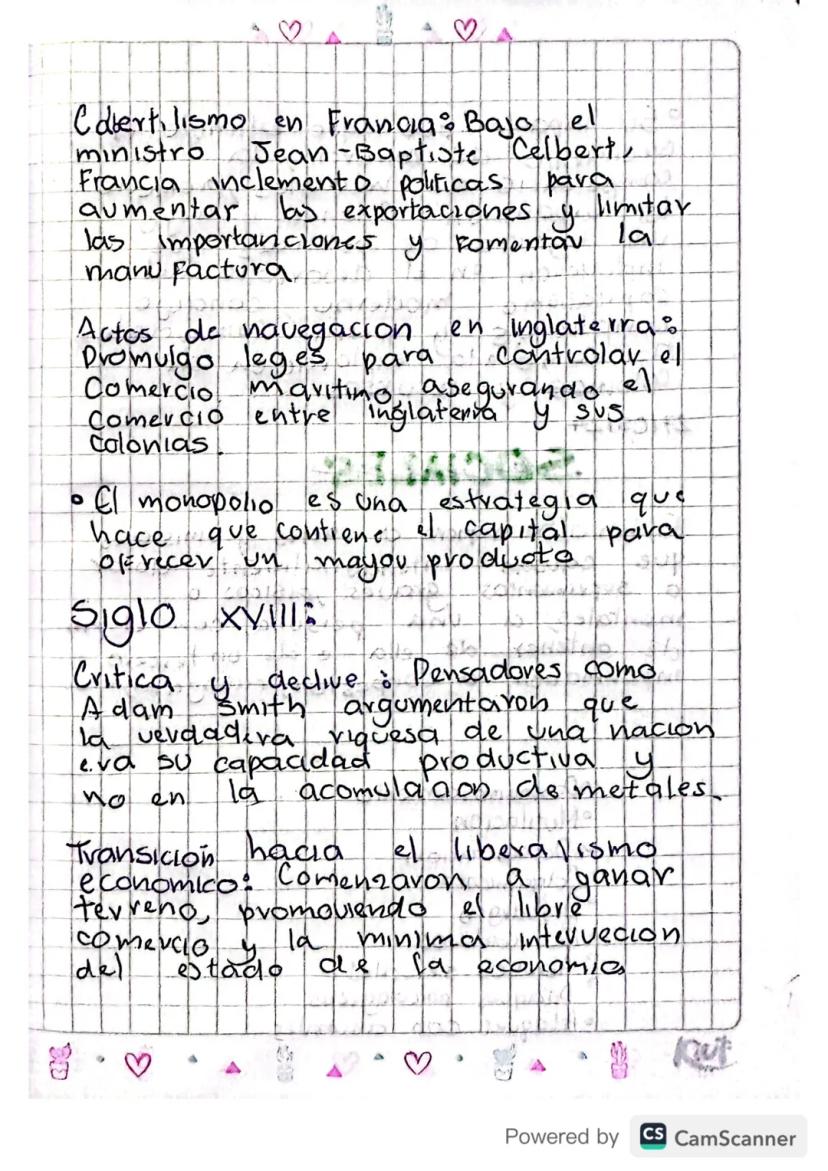 Colbertilismo en Francia: Bajo el
ministro Jean-Baptiste Celbert,
Francia inclemento politicas para
aumentar las exportaciones y limitar
las importanciones y fomentar la
manufactura
Actos de navegacion en inglaterra:
Promulgo leges para controlar el
Comercio maritimo asegurando el
comercio entre inglaterra y sus
colonias.
• El monopolio es una estrategia que
hace que contiene el capital para
ofrecer un mayou producto
Siglo XVIII:
Critica y declive: Pensadores como
Adam Smith argumentaron que
la verdadera riquesa de una nacion
era su capacidad productiva y
no en la acomulacion de metales.
Transición hacia el liberalismo
economico: Comenzaron a ganar
terreno, promoviendo el libre
comercio y la minima intervecion
del estado de la economia
Powered by CS CamScanner